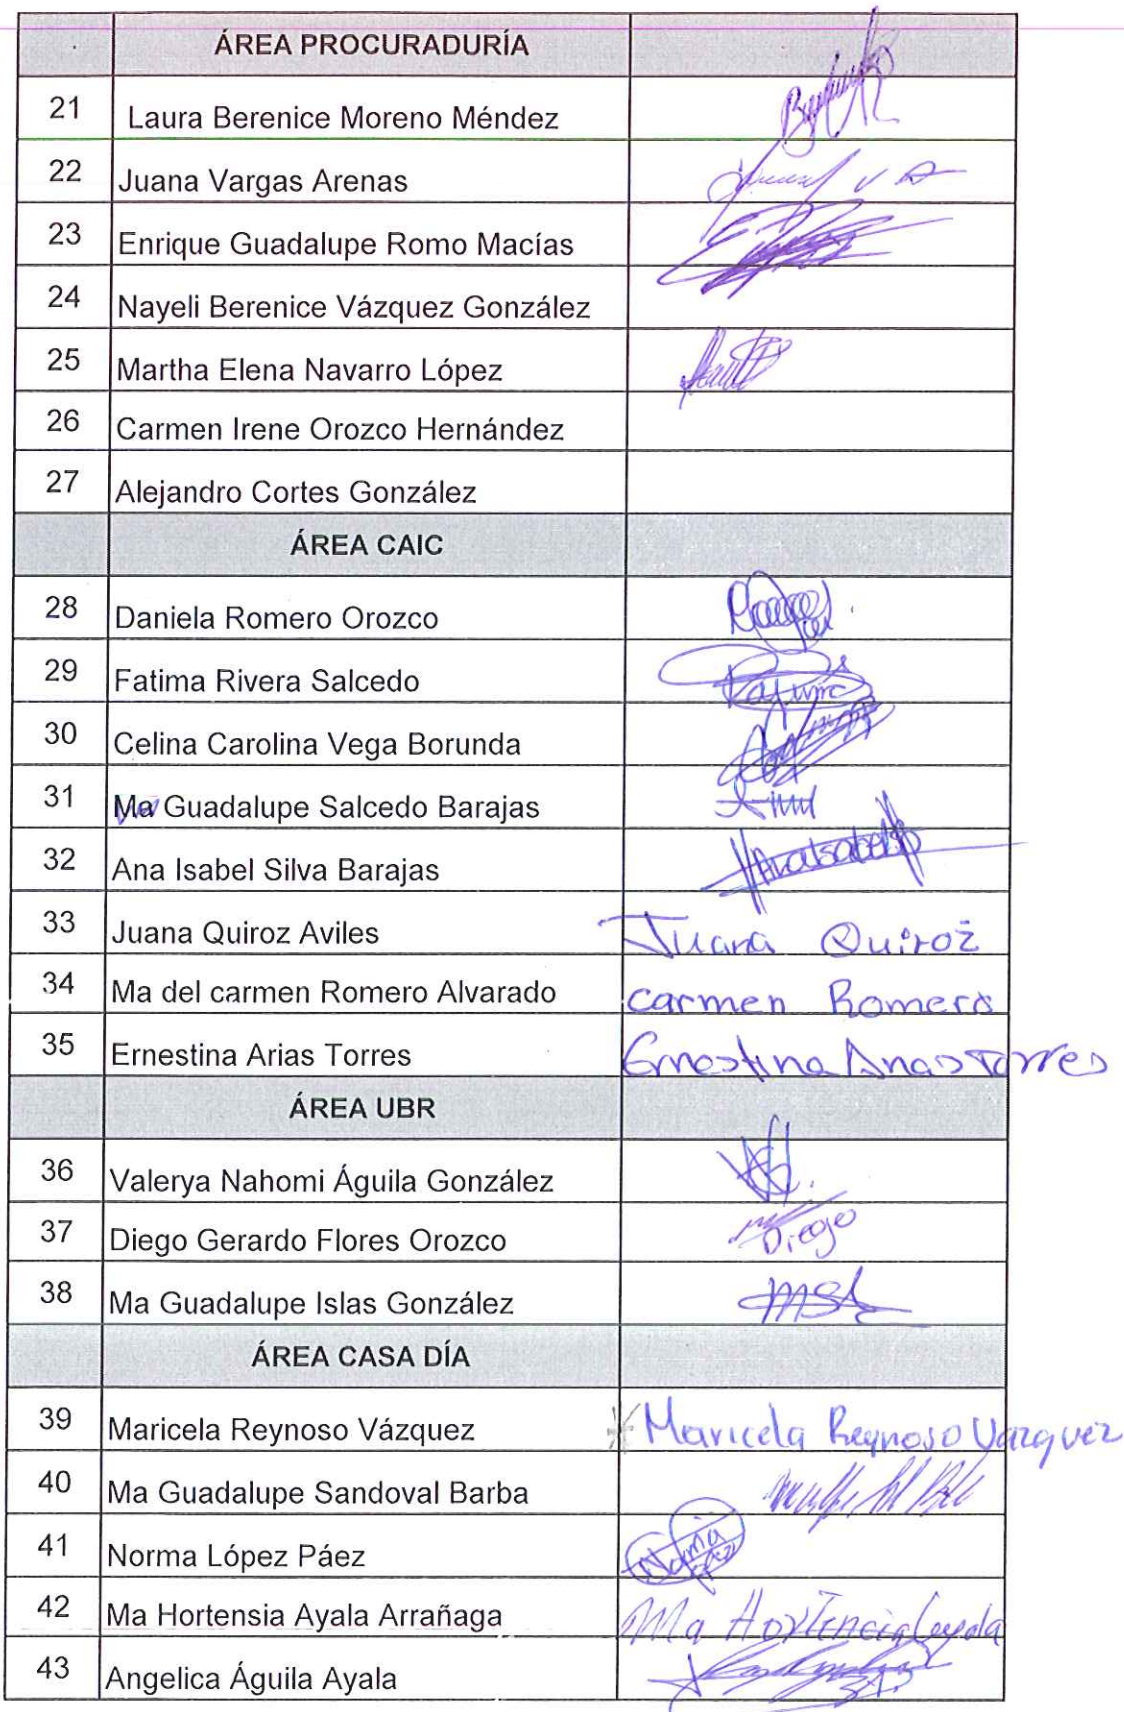 ÁREA PROCURADURÍA
21 Laura Berenice Moreno Méndez
22 Juana Vargas Arenas
23 Enrique Guadalupe Romo Macías
24 Nayeli Berenice Vázquez González
25 Martha Elena Navarro López
26 Carmen Irene Orozco Hernández
27 Alejandro Cortes González
ÁREA CAIC
28 Daniela Romero Orozco
29 Fatima Rivera Salcedo
30 Celina Carolina Vega Borunda
31 Ma Guadalupe Salcedo Barajas
32 Ana Isabel Silva Barajas Anaisabel
33 Juana Quiroz Aviles Juana Quiroz
34 Ma del carmen Romero Alvarado carmen Romero
35 Ernestina Arias Torres Ernestina Arias Torres
ÁREA UBR
36 Valerya Nahomi Águila González
37 Diego Gerardo Flores Orozco Diego
38 Ma Guadalupe Islas González
ÁREA CASA DÍA
39 Maricela Reynoso Vázquez Maricela Reynoso Vazquez
40 Ma Guadalupe Sandoval Barba
41 Norma López Páez
42 Ma Hortensia Ayala Arrañaga Ma Hortencia
43 Angelica Águila Ayala